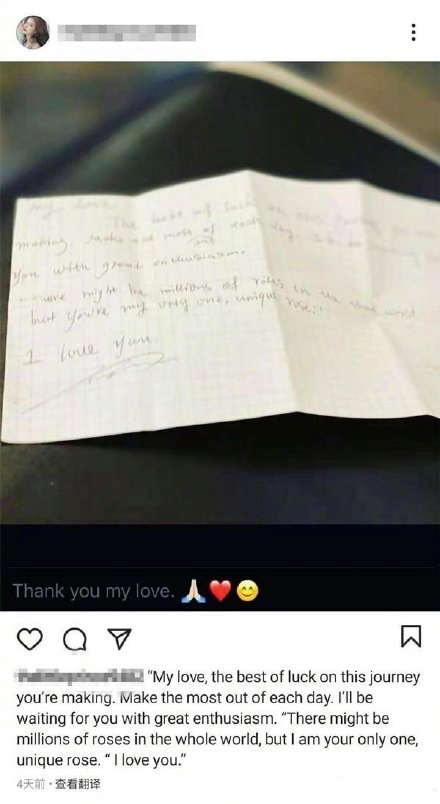 My love,
The best of luck on this
making. Make the most out of each day,
you with great enthusiasm.
"There might be millions of roses in the world
but you're my only one, unique rose."
I love you.
Thank you my love. 🙏🏻❤️😊
“My love, the best of luck on this journey
you’re making. Make the most out of each day. I’ll be
waiting for you with great enthusiasm. “There might be
millions of roses in the whole world, but I am your only one,
unique rose. “ I love you.”
4天前 · 查看翻译